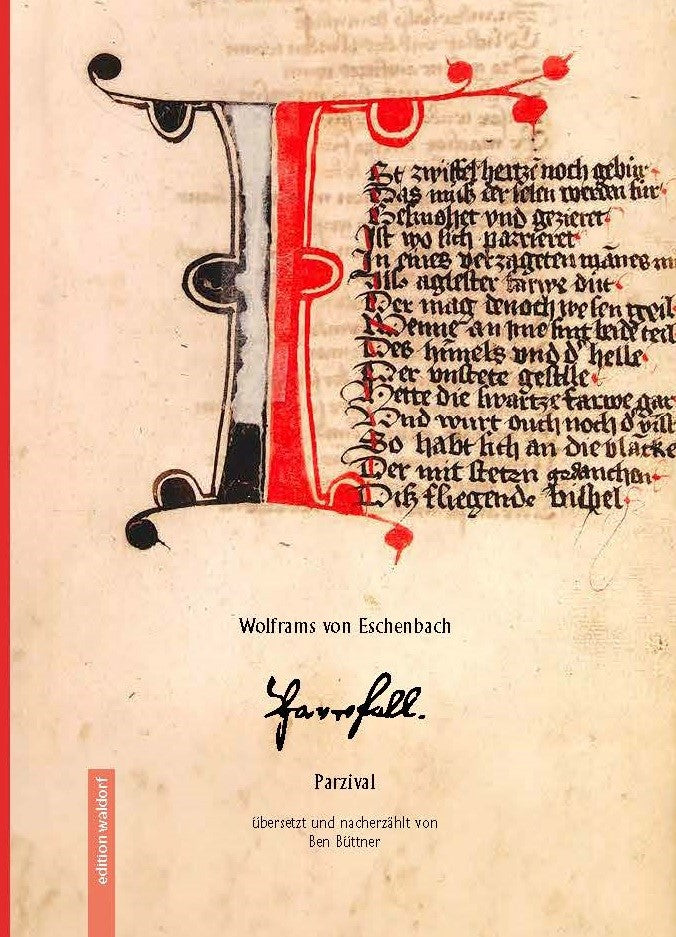 ISt zwiffel hertzē noch gebur
Das muß der selen werden sur
Gesmohet vnd gezieret
Ist wo sich parrieret
In eines verzageten mānes m
Alß aglester farwe dut
Der mag denoch wesen geil
Wenne an ime sint beide teil
Des himels vnd d' helle
Der vnstete geselle
Hette die swartze farwe gar
Vnd wurt ouch noch d'
So habt sich an die blācke
Der mit steten gedanchen
Diß fliegende bispel
Wolframs von Eschenbach
Parzival
übersetzt und nacherzählt von
Ben Büttner
edition waldorf